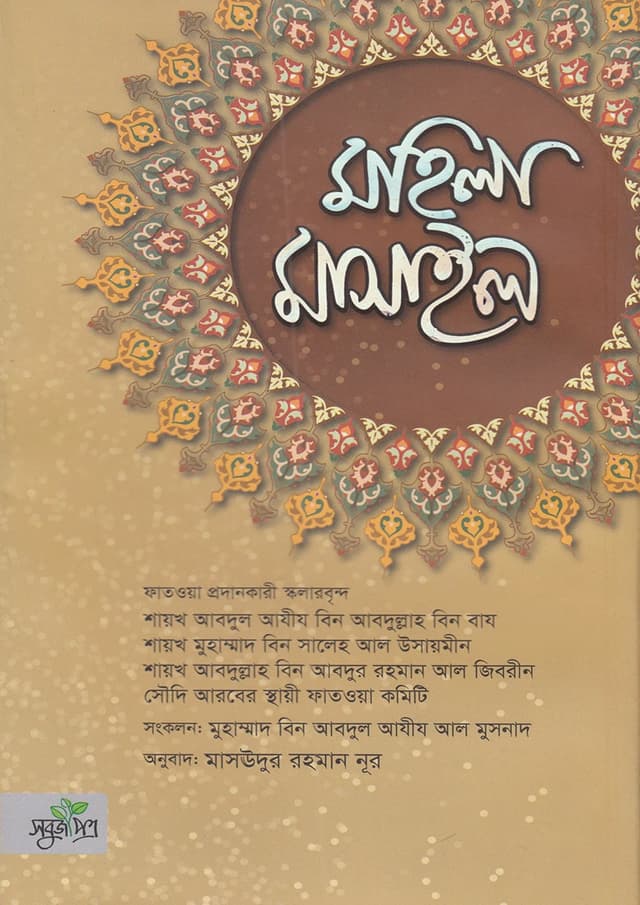 মহিলা
মাসাইল
ফাতওয়া প্রদানকারী স্কলারবৃন্দ
শায়খ আবদুল আযীয বিন আবদুল্লাহ বিন বায
শায়খ মুহাম্মাদ বিন সালেহ আল উসায়মীন
শায়খ আবদুল্লাহ বিন আবদুর রহমান আল জিবরীন
সৌদি আরবের স্থায়ী ফাতওয়া কমিটি
সংকলন: মুহাম্মাদ বিন আবদুল আযীয আল মুসনাদ
অনুবাদ: মাসঊদুর রহমান নূর
সবুজপত্র